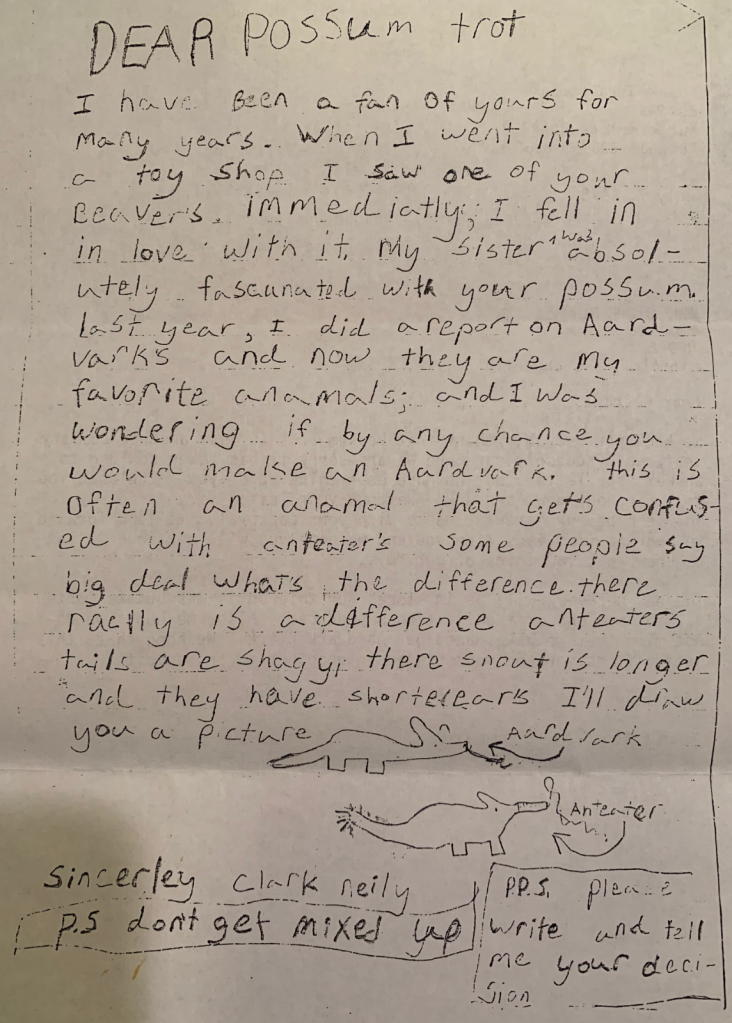 DEAR POSSum trot
I have Been a fan of yours for
many years. When I went into
a toy shop I saw one of your
Beavers. immediatly; I fell in
in love with it. My sister was absol-
utely fascunated with your possum.
last year, I did a report on Aard-
varks and now they are my
favorite anamals; and I was
wondering if by any chance you
would make an Aardvark. this is
often an anamal that gets confus-
ed with anteater's some people say
big deal whats the difference. there
raelly is a difference anteaters
tails are shagy, there snout is longer
and they have shorter ears I'll draw
you a picture
Aardvark
Anteater
Sincerley Clark neily
P.S don't get mixed up
P.P.S. please
write and tell
me your deci-
sion